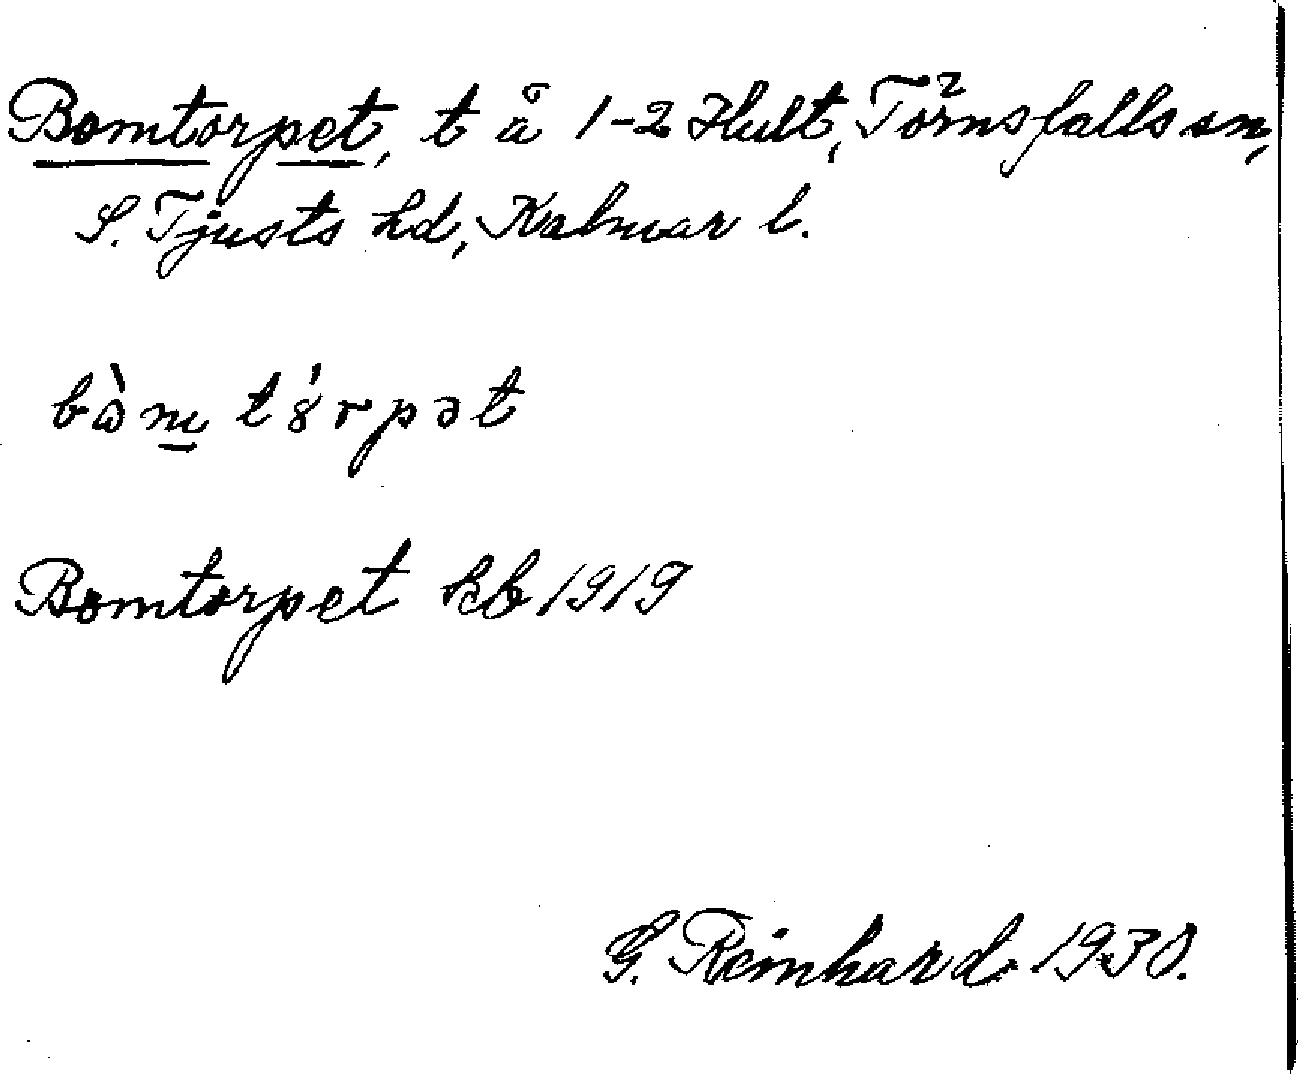 Bomtorpet, t å 1-2 Hult, Törnsfalls sn,
S. Tjusts hd, Kalmar l.
bɷ̀m̲ tȣ́rpət
Bomtorpet kb 1919
G. Reinhard 1930.